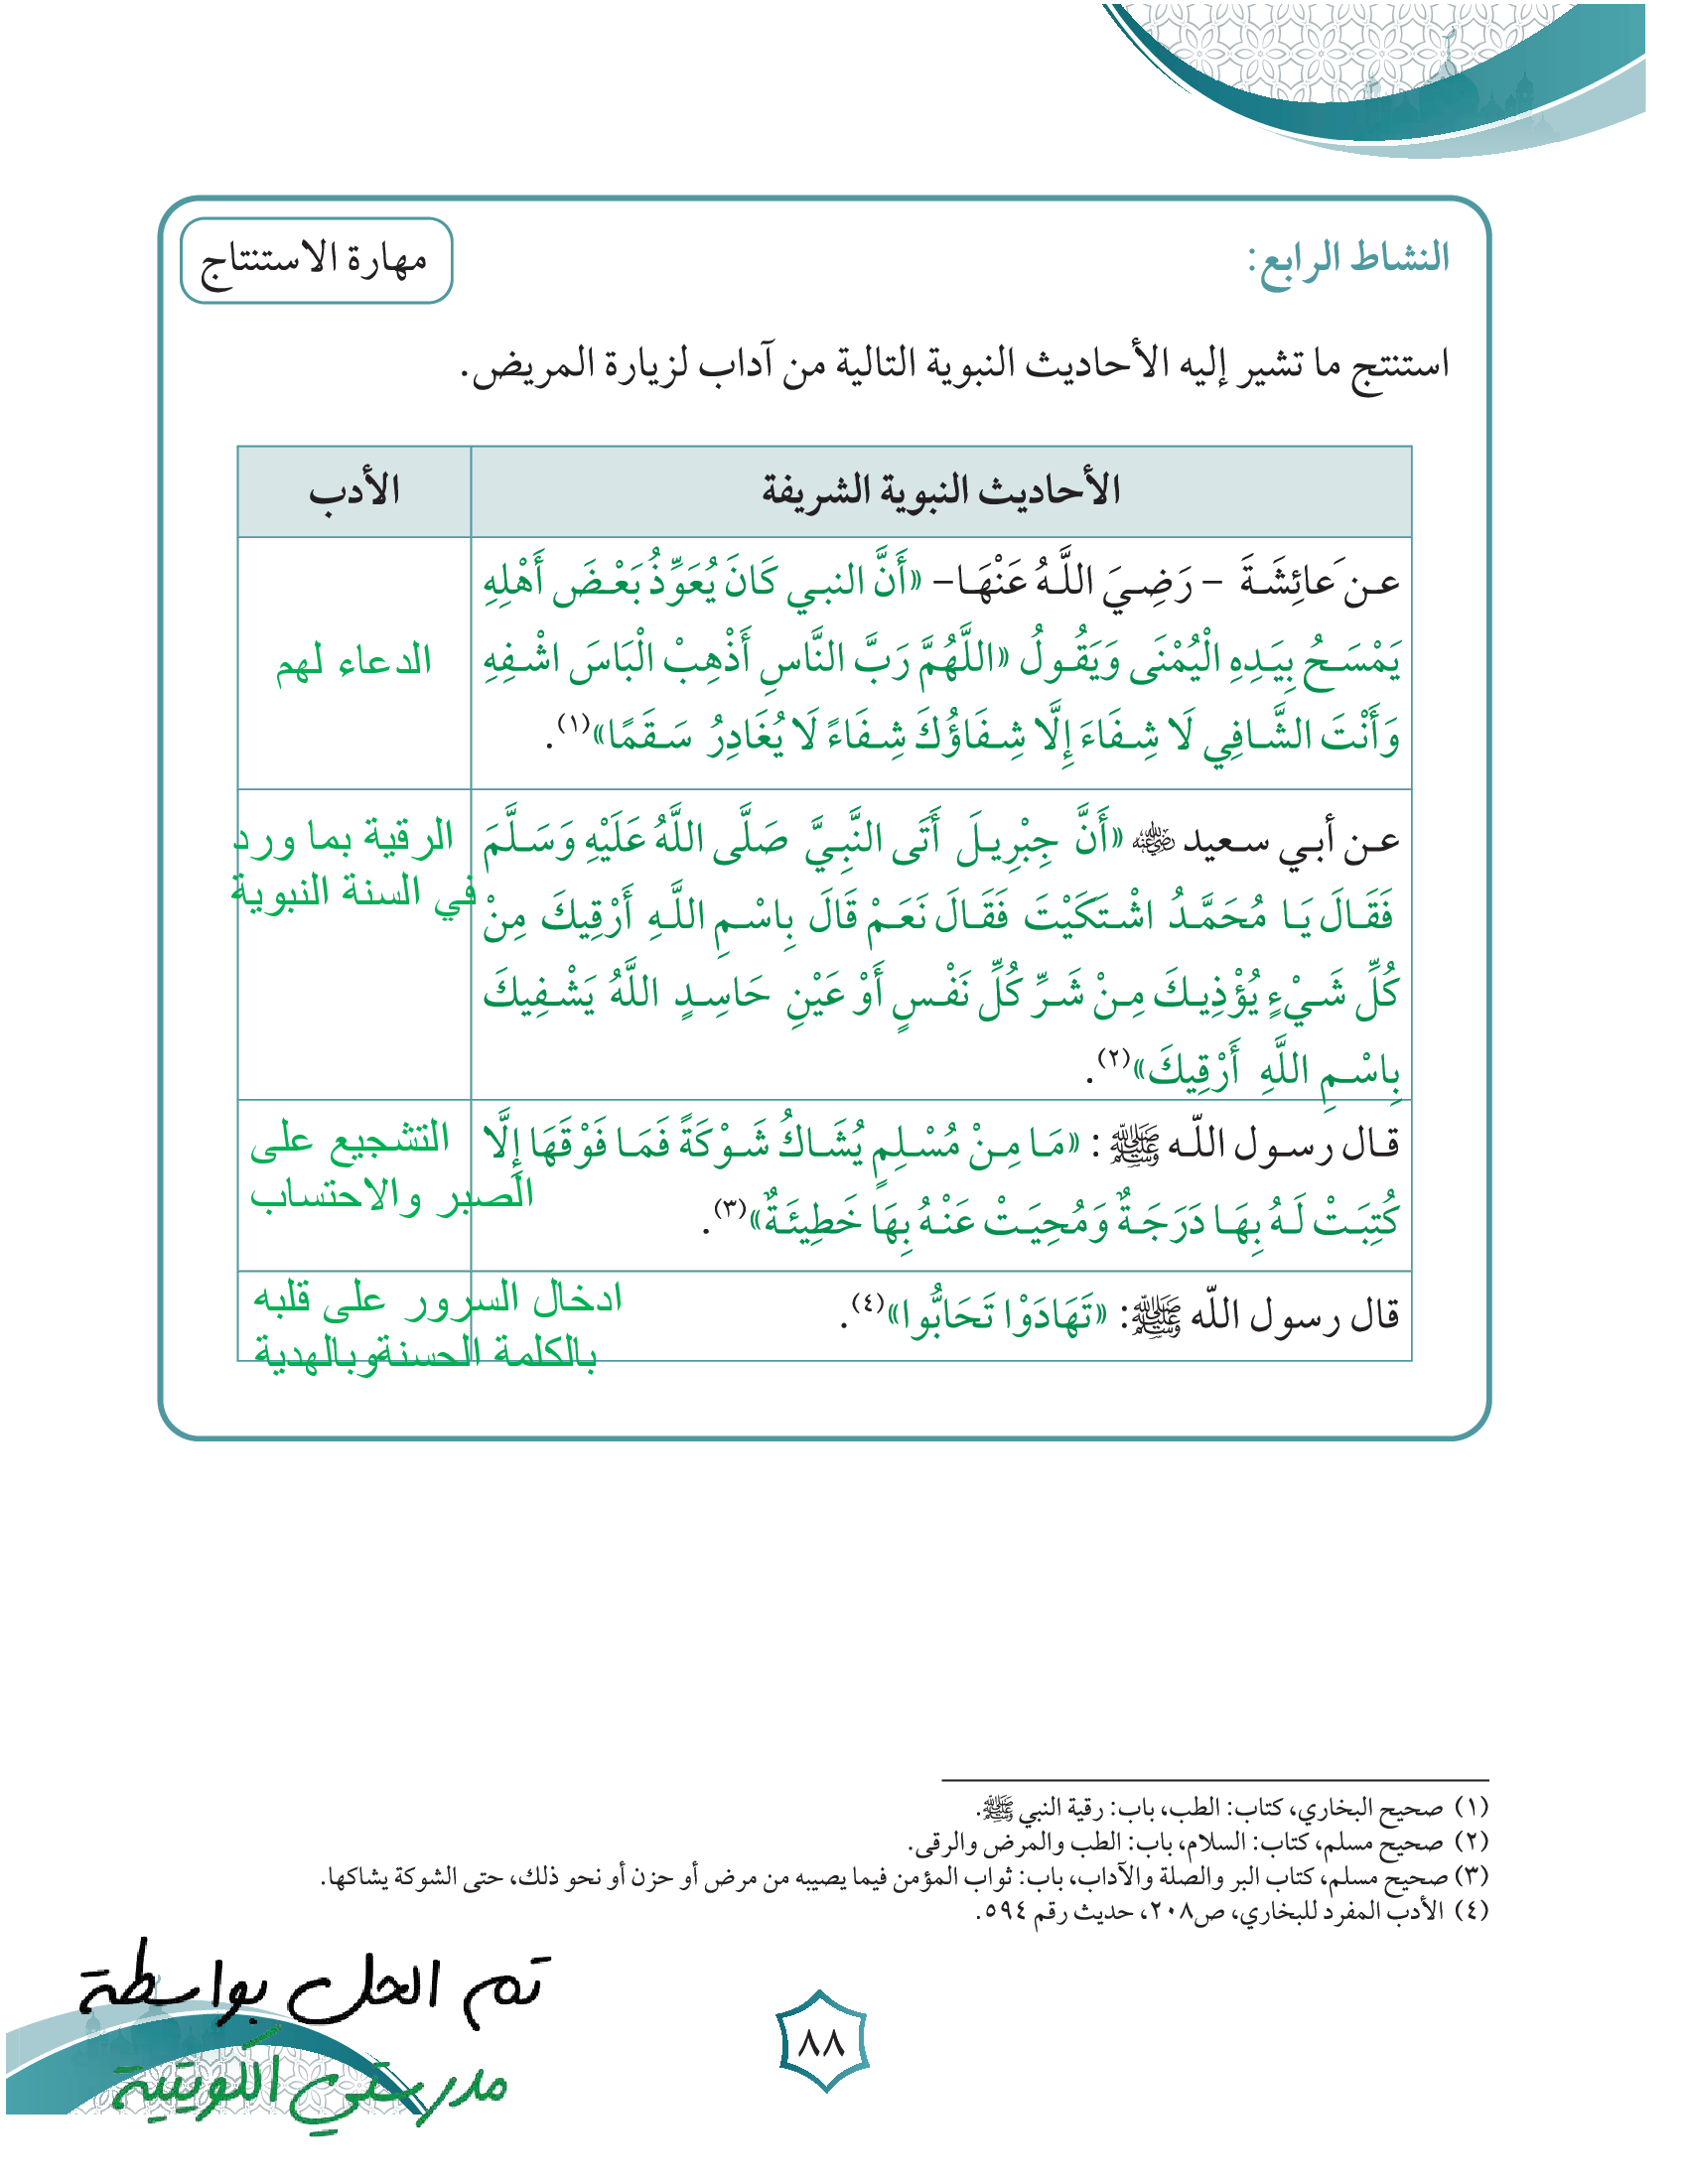 النشاط الرابع:
مهارة الاستنتاج
استنتج ما تشير إليه الأحاديث النبوية التالية من آداب لزيارة المريض.
الأحاديث النبوية الشريفة
الأدب
عن َعائِشَةَ – رَضِيَ اللَّهُ عَنْهَا– «أَنَّ النبي كَانَ يُعَوِّذُ بَعْضَ أَهْلِهِ
يَمْسَحُ بِيَدِهِ الْيُمْنَى وَيَقُولُ «اللَّهُمَّ رَبَّ النَّاسِ أَذْهِبْ الْبَاسَ اشْفِهِ
وَأَنْتَ الشَّافِي لَا شِفَاءَ إِلَّا شِفَاؤُكَ شِفَاءً لَا يُغَادِرُ سَقَمًا»(١).
الدعاء لهم
عن أبي سعيد رضي الله عنه «أَنَّ جِبْرِيلَ أَتَى النَّبِيَّ صَلَّى اللَّهُ عَلَيْهِ وَسَلَّمَ
فَقَالَ يَا مُحَمَّدُ اشْتَكَيْتَ فَقَالَ نَعَمْ قَالَ بِاسْمِ اللَّهِ أَرْقِيكَ مِنْ
كُلِّ شَيْءٍ يُؤْذِيكَ مِنْ شَرِّ كُلِّ نَفْسٍ أَوْ عَيْنِ حَاسِدٍ اللَّهُ يَشْفِيكَ
بِاسْمِ اللَّهِ أَرْقِيكَ»(٢).
الرقية بما ورد
في السنة النبوية
قال رسول اللّه ﷺ: «مَا مِنْ مُسْلِمٍ يُشَاكُ شَوْكَةً فَمَا فَوْقَهَا إِلَّا
كُتِبَتْ لَهُ بِهَا دَرَجَةٌ وَمُحِيَتْ عَنْهُ بِهَا خَطِيئَةٌ»(٣).
التشجيع على
الصبر والاحتساب
قال رسول اللّه ﷺ: «تَهَادَوْا تَحَابُّوا»(٤).
ادخال السرور على قلبه
بالكلمة الحسنةوبالهدية
(١) صحيح البخاري، كتاب: الطب، باب: رقية النبي ﷺ.
(٢) صحيح مسلم، كتاب: السلام، باب: الطب والمرض والرقى.
(٣) صحيح مسلم، كتاب البر والصلة والآداب، باب: ثواب المؤمن فيما يصيبه من مرض أو حزن أو نحو ذلك، حتى الشوكة يشاكها.
(٤) الأدب المفرد للبخاري، ص٢٠٨، حديث رقم ٥٩٤.
تم الحل بواسطة
مدرستي الكويتية
٨٨